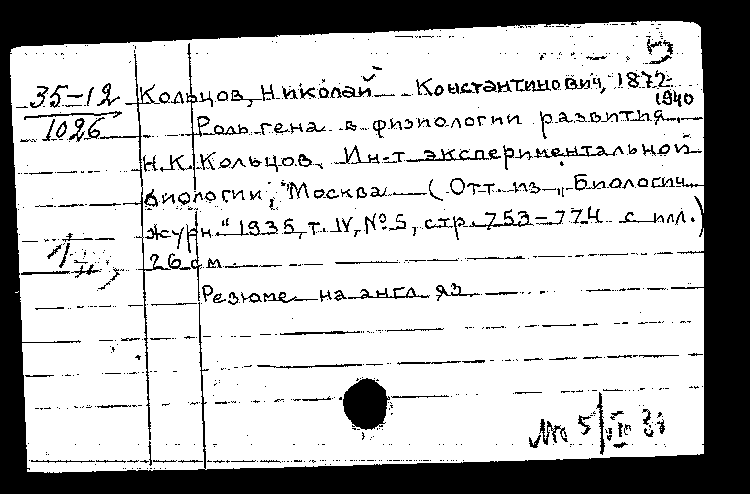 35-12
1026
Кольцов, Николай Константинович, 1872-
1940
Роль гена в физиологии развития.
Н.К. Кольцов. Ин-т экспериментальной
биологии, Москва (Отт. из „Биологич.
журн." 1935, т. IV, № 5, стр. 753-774 с илл.)
26 см.
Резюме на англ яз
5